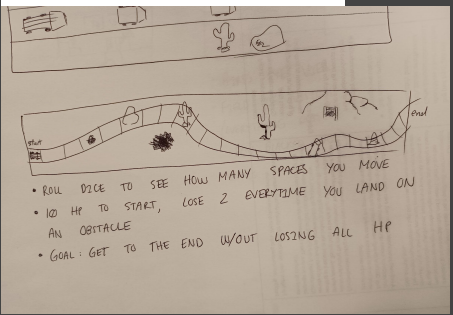 start
end
• ROLL DICE TO SEE HOW MANY SPACES YOU MOVE
• 10 HP TO START, LOSE 2 EVERYTIME YOU LAND ON
AN OBSTACLE
• GOAL: GET TO THE END W/OUT LOSING ALL HP